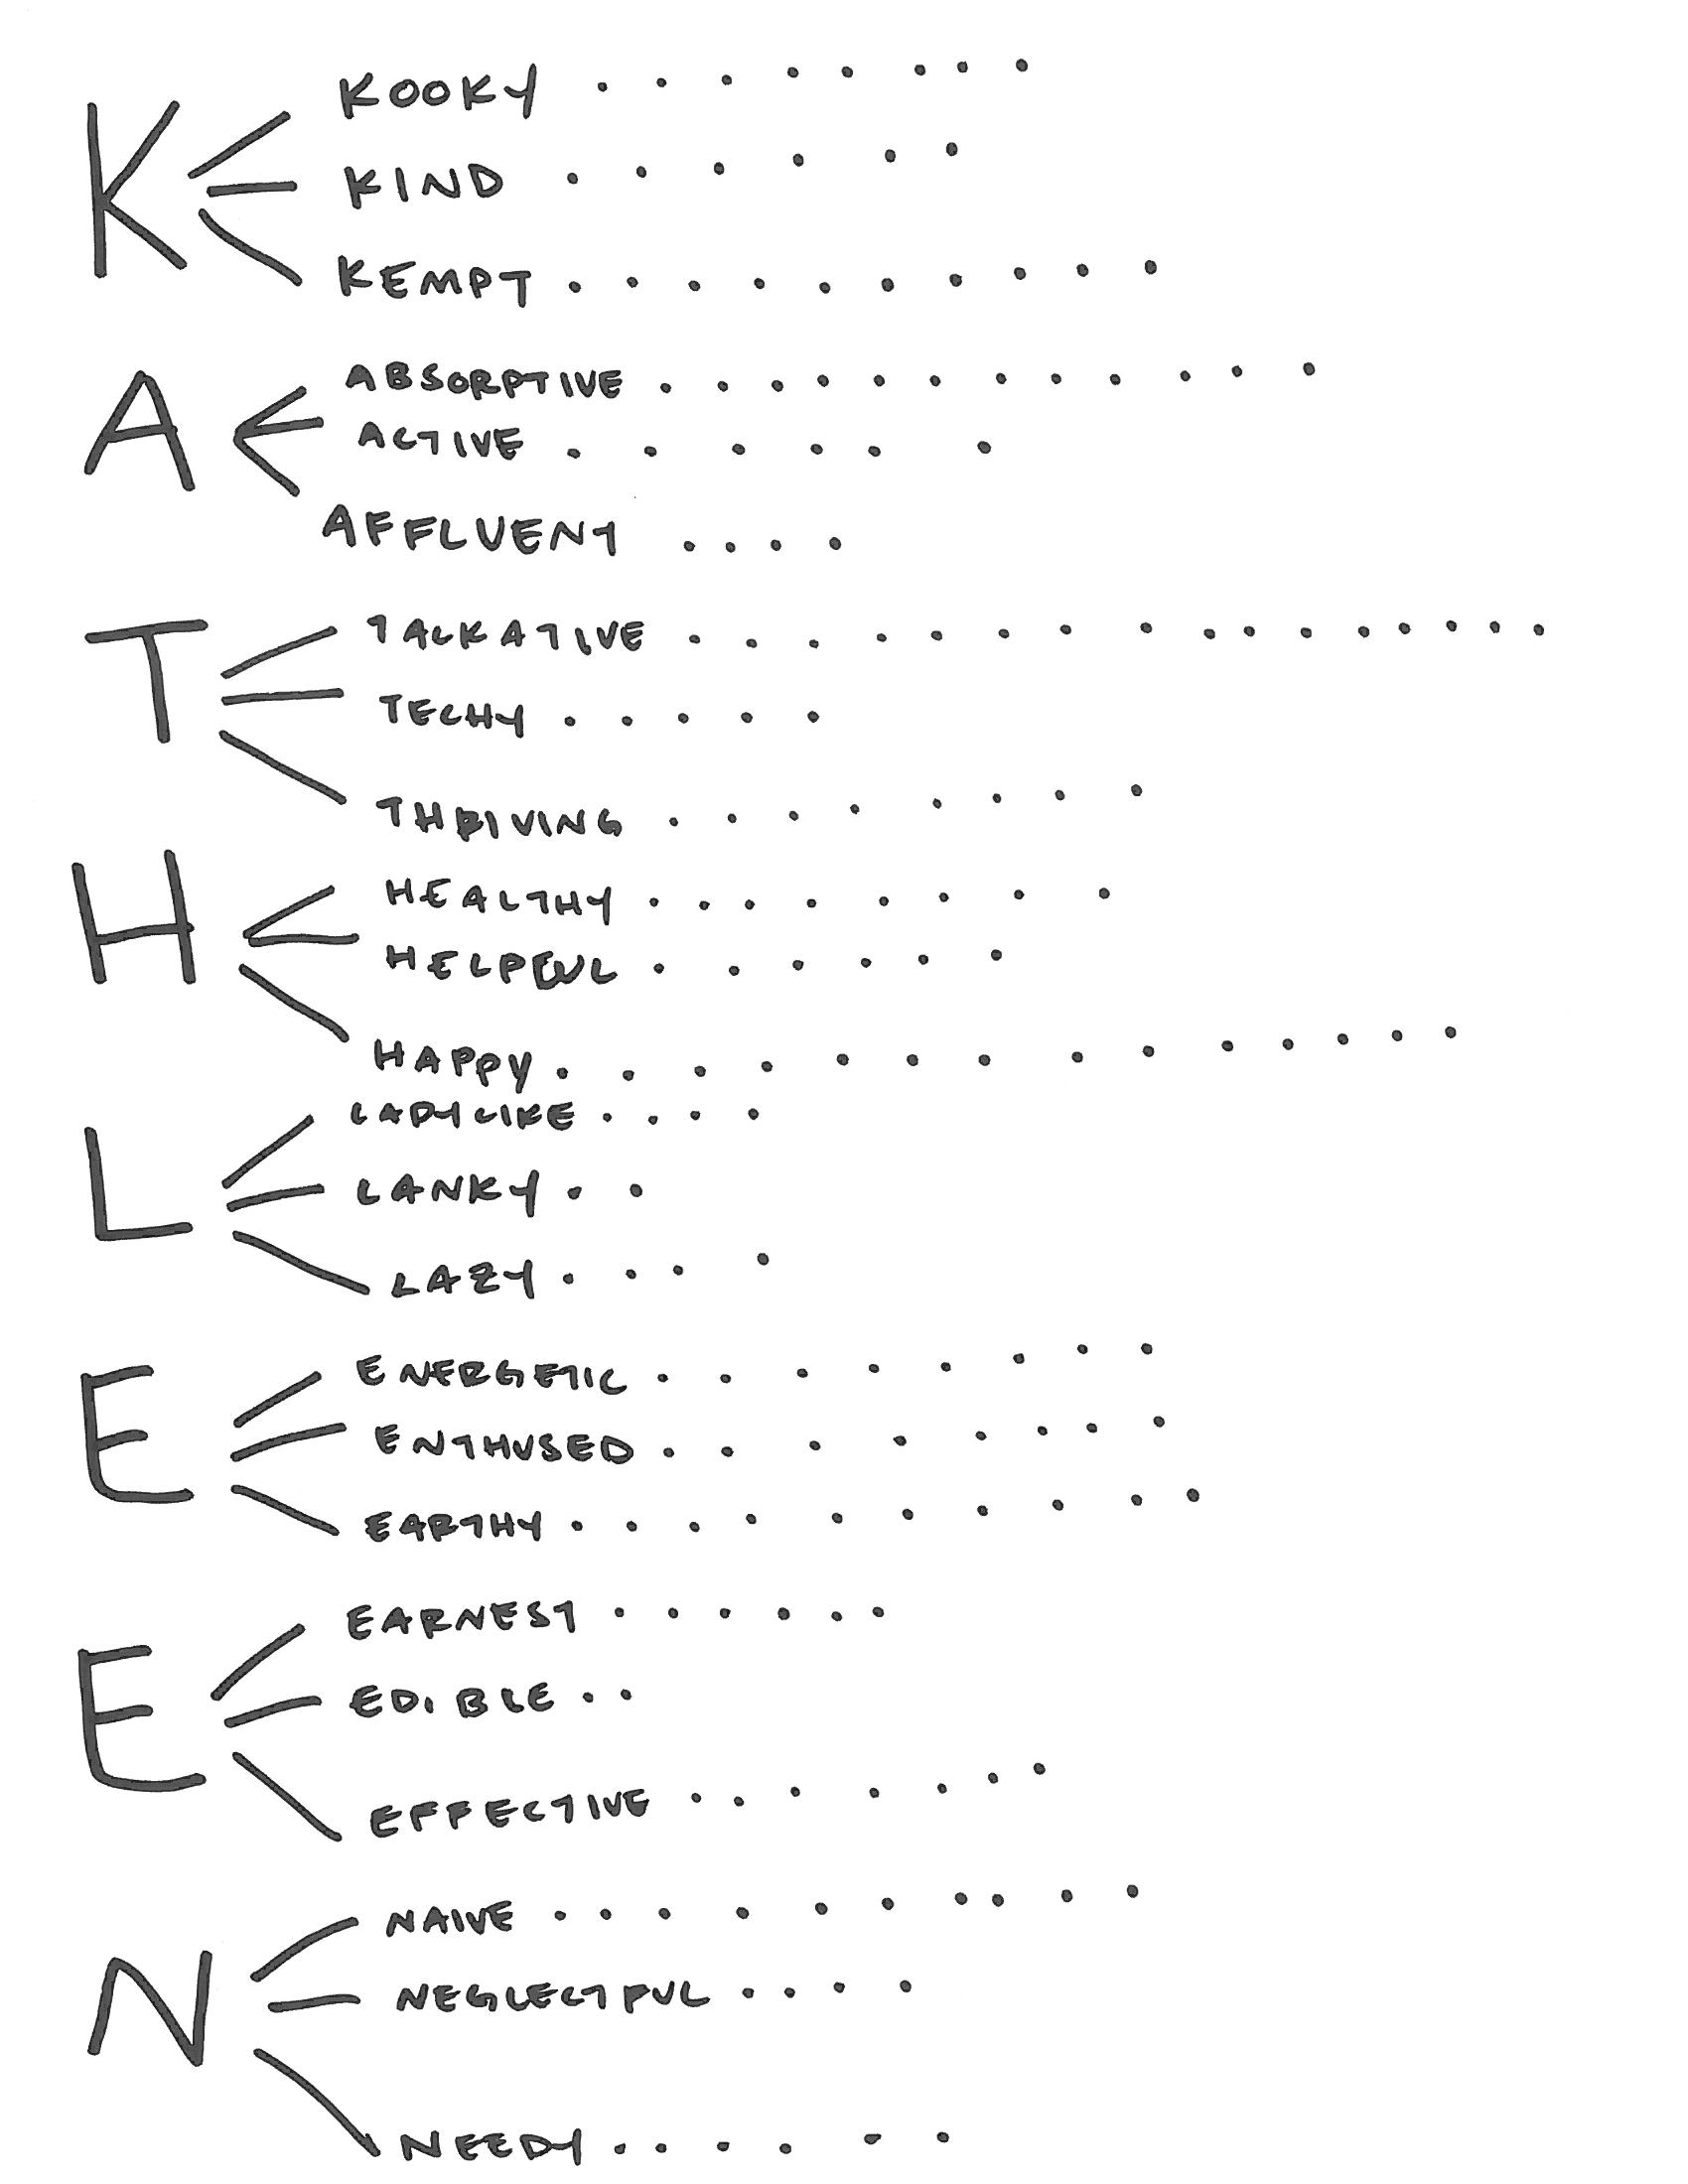 K
KOOKY . . . . . . . .
KIND . . . . . .
KEMPT . . . . . . . . . .
A
ABSORPTIVE . . . . . . . . . . . .
ACTIVE . . . . . .
AFFLUENT . . . .
T
TALKATIVE . . . . . . . . . . . . . . . .
TECHY . . . . .
THRIVING . . . . . . . .
H
HEALTHY . . . . . . . .
HELPFUL . . . . . .
HAPPY . . . . . . . . . . . . . .
L
LADYLIKE . . . .
LANKY . .
LAZY . . . .
E
ENERGETIC . . . . . . . .
ENTHUSED . . . . . . . .
EARTHY . . . . . . . . . .
E
EARNEST . . . . . .
EDIBLE . .
EFFECTIVE . . . . . . .
N
NAIVE . . . . . . . . . .
NEGLECTFUL . . . .
NEEDY . . . . . .